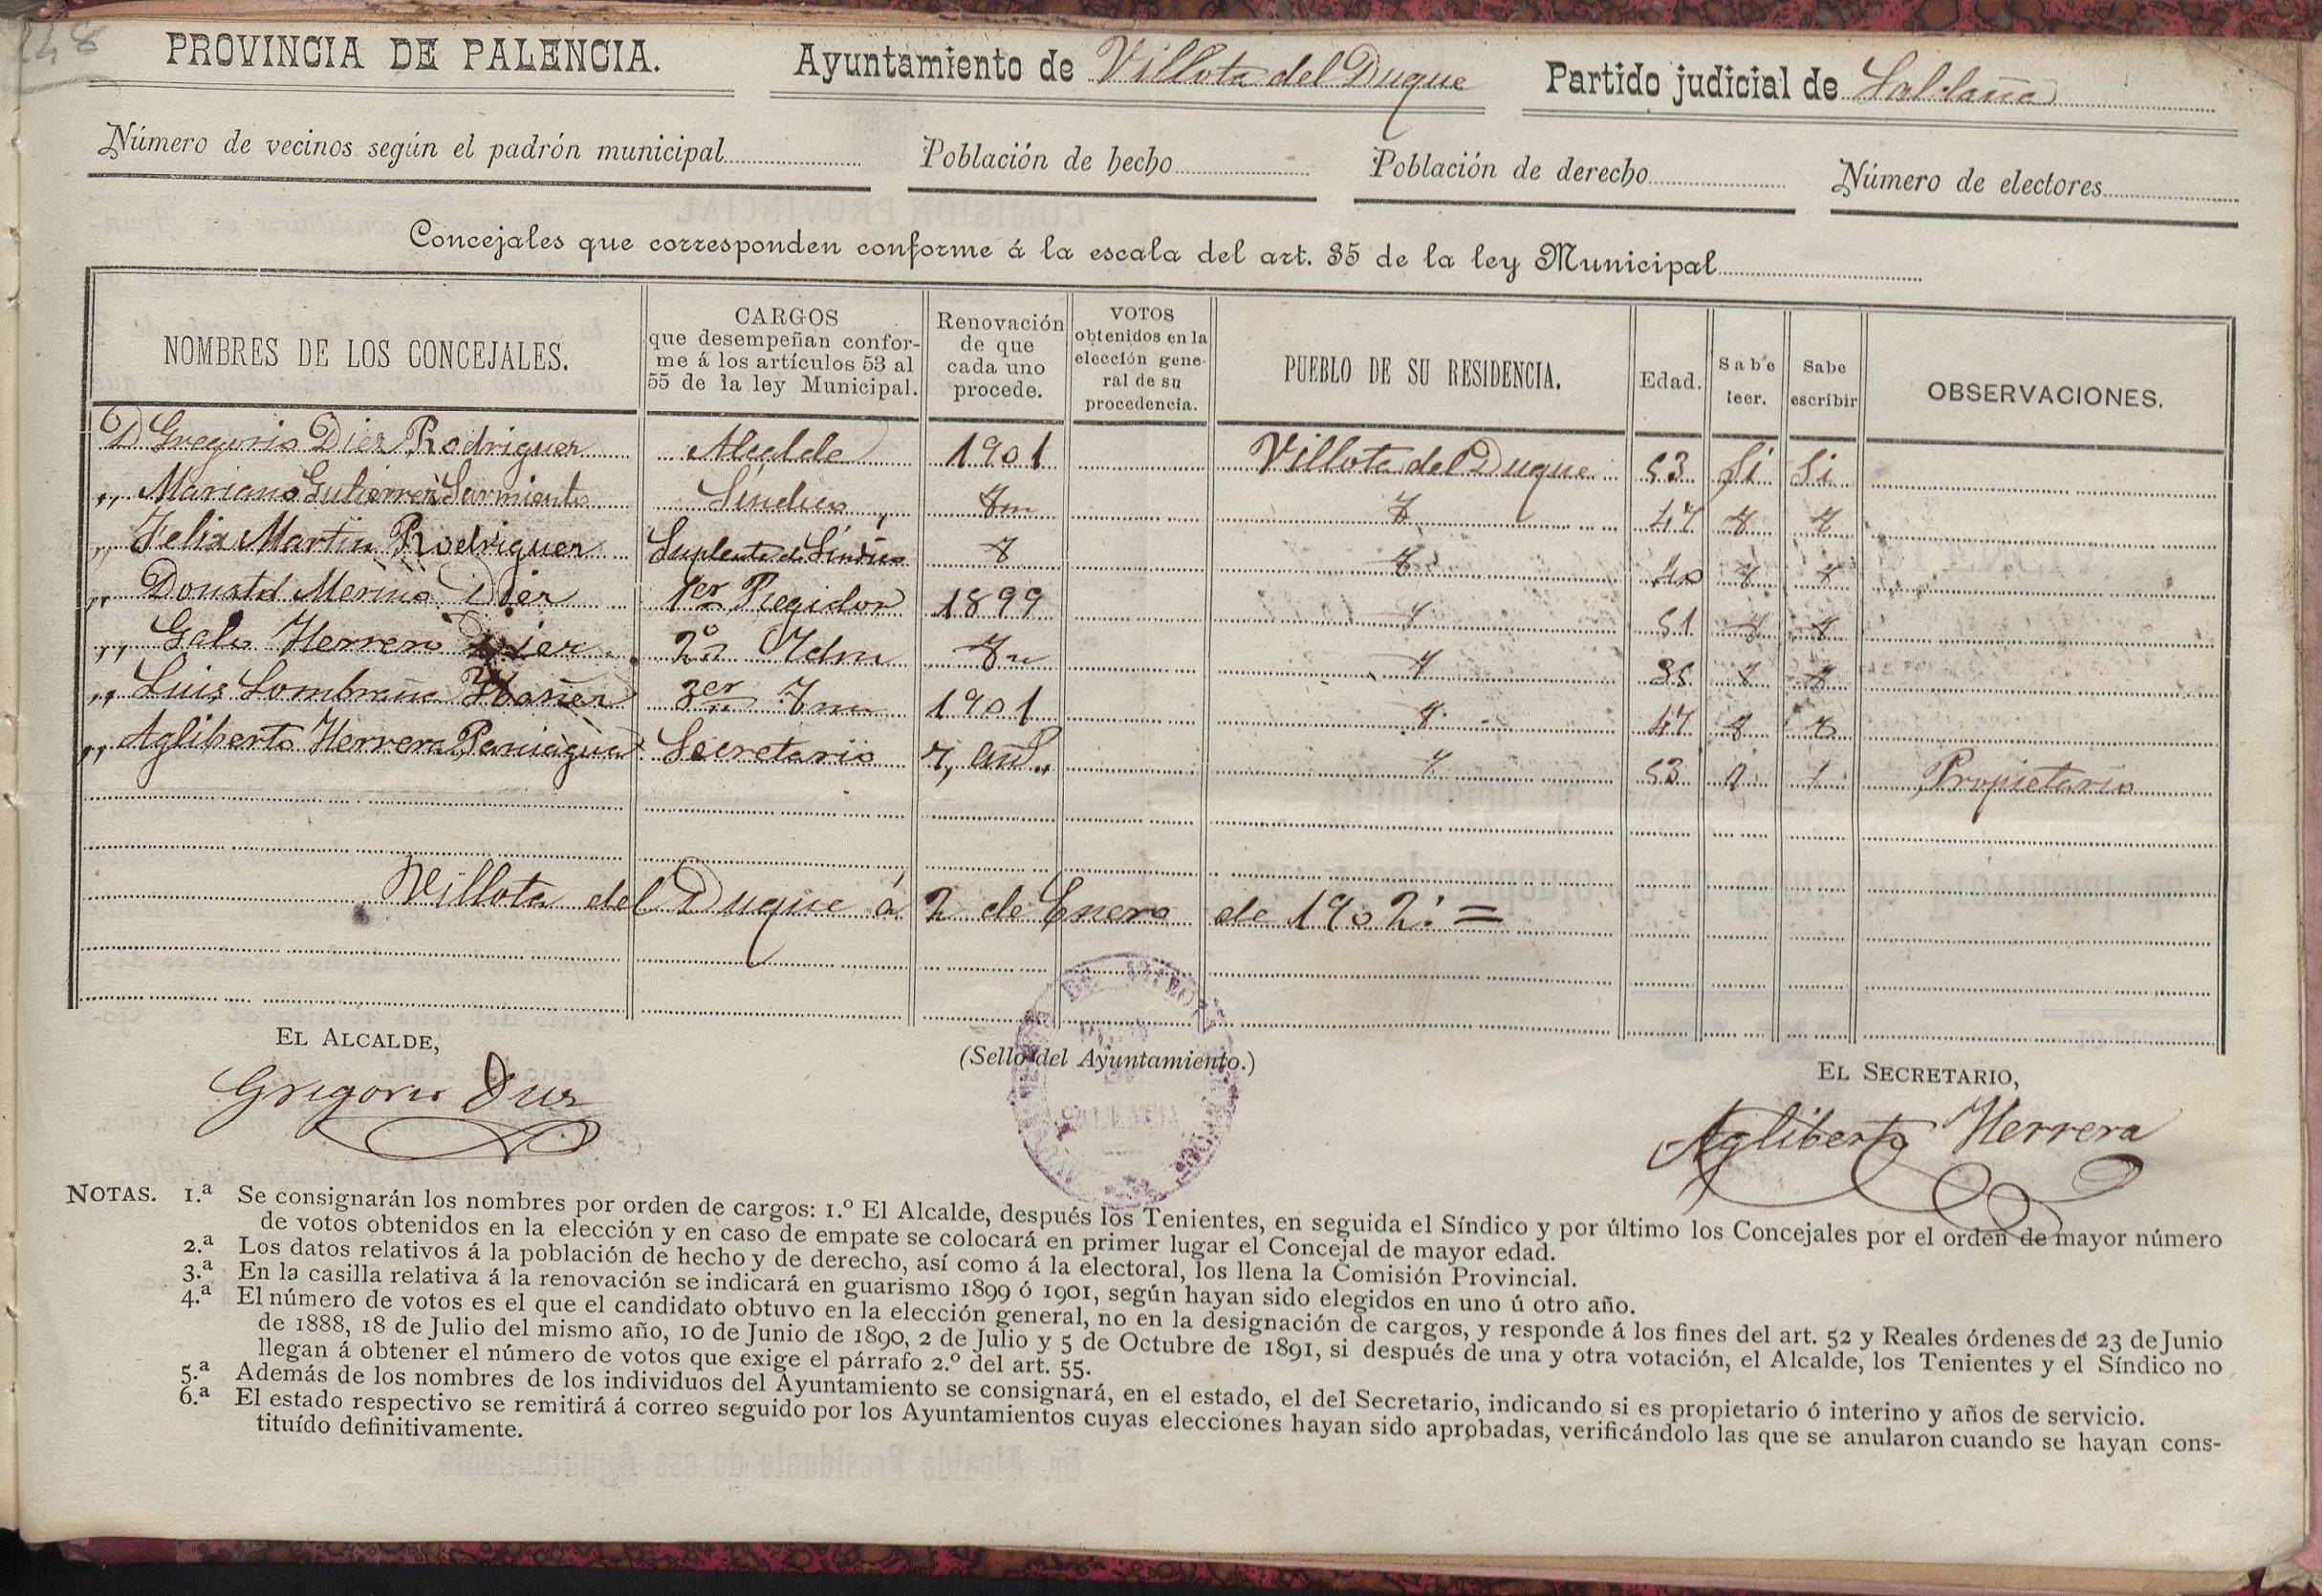 148
PROVINCIA DE PALENCIA. Ayuntamiento de Villota del Duque Partido judicial de Saldaña
Número de vecinos según el padrón municipal Población de hecho Población de derecho Número de electores
Concejales que corresponden conforme á la escala del art. 35 de la ley Municipal
NOMBRES DE LOS CONCEJALES. CARGOS que desempeñan conforme á los artículos 53 al 55 de la ley Municipal. Renovación de que cada uno procede. VOTOS obtenidos en la elección general de su procedencia. PUEBLO DE SU RESIDENCIA. Edad. Sabe leer. Sabe escribir OBSERVACIONES.
D Gregorio Diez Rodriguez Alcalde 1901 Villota del Duque 53 Si Si
" Mariano Gutierrez Sarmiento Sindico 47
" Felix Martin Rodriguez Suplente de Sindico 40
" Donato Merino Diez 1er Regidor 1899 51
" Galo Herrero Diez 2º Idm 35
" Luis Lombraña Ibañez 3er 1901 47
" Agliberto Herrera Paniagua Secretario 53 Propietario
Villota del Duque á 2 de Enero de 1902. =
EL ALCALDE, (Sello del Ayuntamiento.) EL SECRETARIO,
Gregorio Diez Agliberto Herrera
NOTAS. 1.ª Se consignarán los nombres por orden de cargos: 1.º El Alcalde, después los Tenientes, en seguida el Síndico y por último los Concejales por el orden de mayor número
de votos obtenidos en la elección y en caso de empate se colocará en primer lugar el Concejal de mayor edad.
2.ª Los datos relativos á la población de hecho y de derecho, así como á la electoral, los llena la Comisión Provincial.
3.ª En la casilla relativa á la renovación se indicará en guarismo 1899 ó 1901, según hayan sido elegidos en uno ú otro año.
4.ª El número de votos es el que el candidato obtuvo en la elección general, no en la designación de cargos, y responde á los fines del art. 52 y Reales órdenes de 23 de Junio
de 1888, 18 de Julio del mismo año, 10 de Junio de 1890, 2 de Julio y 5 de Octubre de 1891, si después de una y otra votación, el Alcalde, los Tenientes y el Síndico no
llegan á obtener el número de votos que exige el párrafo 2.º del art. 55.
5.ª Además de los nombres de los individuos del Ayuntamiento se consignará, en el estado, el del Secretario, indicando si es propietario ó interino y años de servicio.
6.ª El estado respectivo se remitirá á correo seguido por los Ayuntamientos cuyas elecciones hayan sido aprobadas, verificándolo las que se anularon cuando se hayan cons-
tituído definitivamente.